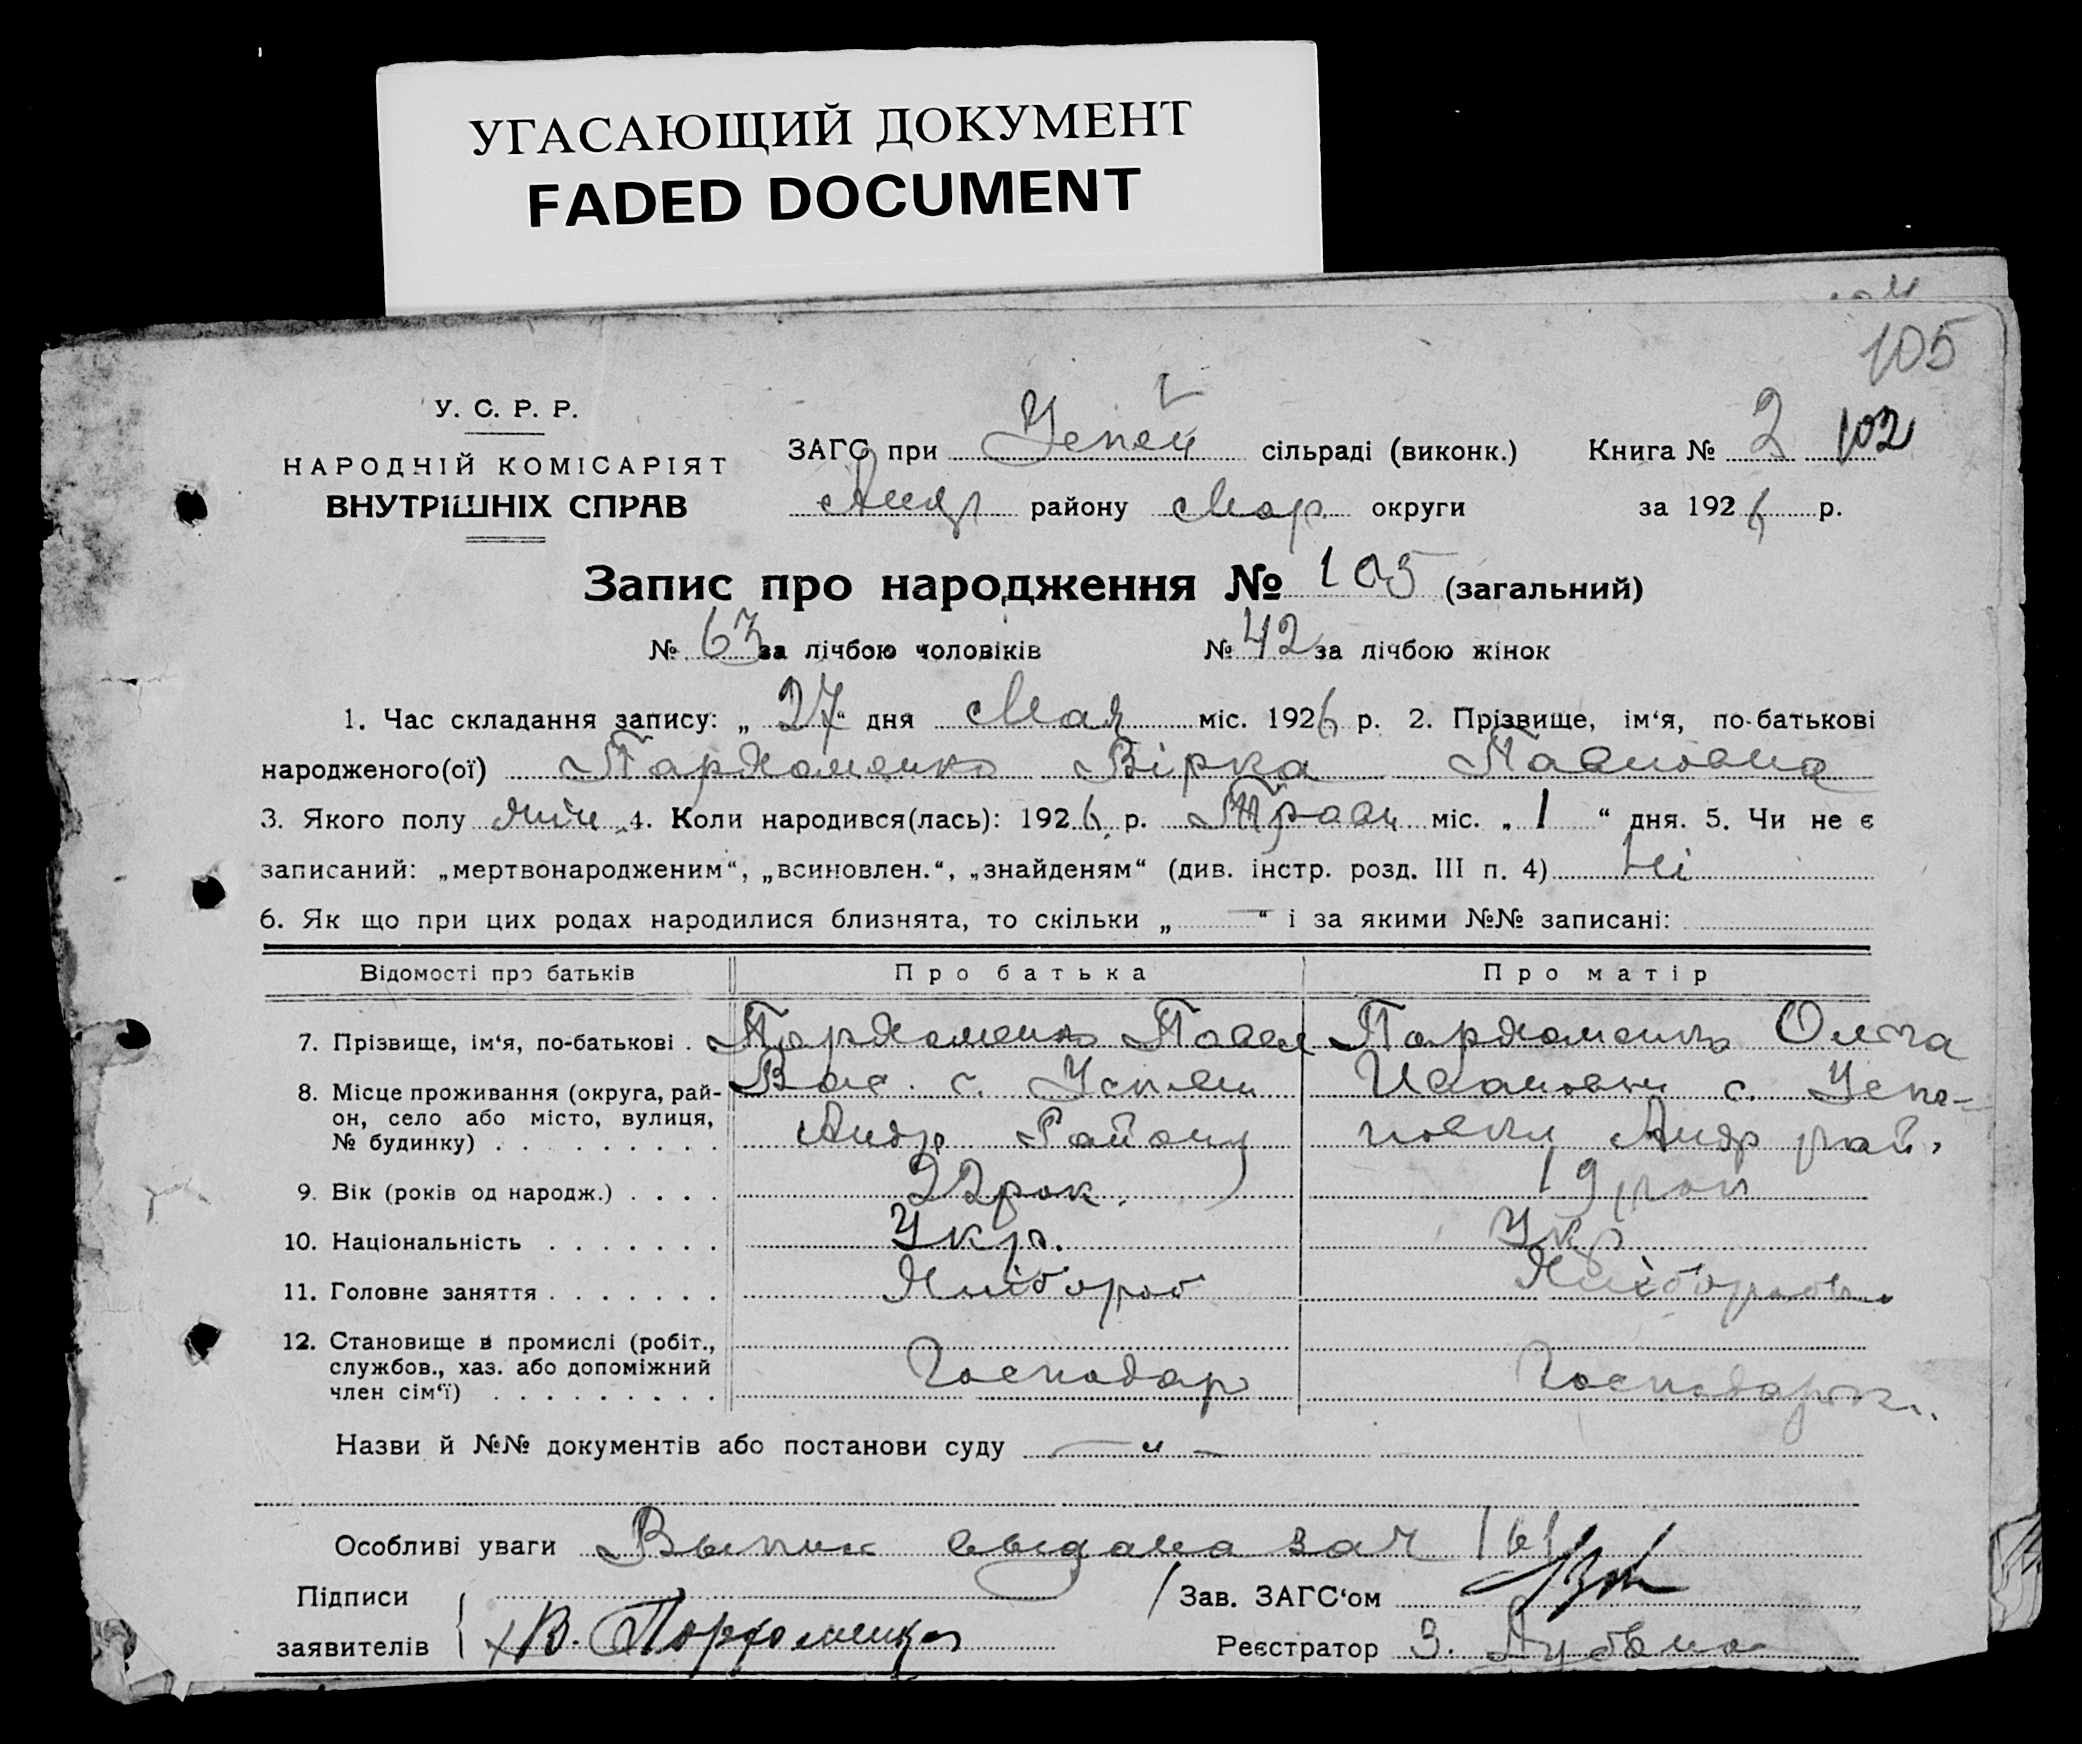 УГАСАЮЩИЙ ДОКУМЕНТ
FADED DOCUMENT
105
У. С. Р. Р.
НАРОДНІЙ КОМІСАРІЯТ
ВНУТРІШНІХ СПРАВ
ЗАГС при Успен сільраді (виконк.) Книга № 2 102
Андр району Мар. округи за 1926 р.
Запис про народження № 105 (загальний)
№ 63 за лічбою чоловіків № 42 за лічбою жінок
1. Час складання запису: „ 27 “ дня Мая міс. 1926 р. 2. Прізвище, ім‘я, по-батькові
народженого(ої) Пархоменко Вірка Павловна
3. Якого полу жін 4. Коли народився(лась): 1926 р. Травн міс. „ 1 “ дня. 5. Чи не є
записаний: „мертвонародженим“, „всиновлен.“, „знайденям“ (див. інстр. розд. III п. 4) Ні
6. Як що при цих родах народилися близнята, то скільки „ — “ і за якими №№ записані:
Відомості про батьків Про батька Про матір
7. Прізвище, ім‘я, по-батькові . Пархоменко Павел Пархоменко Ольга
8. Місце проживання (округа, рай- Вас. с. Успен Ивановн с. Успе-
он, село або місто, вулиця,
№ будинку) . . . . . . . . . Андр. Району Андр рай.
9. Вік (років од народж.) . . . . 22 рок. 19 рок
10. Національність . . . . . . . Укр. Укр
11. Головне заняття . . . . . . . Хлібороб Хлібороб
12. Становище в промислі (робіт.,
службов., хаз. або допоміжний Господар Господарк.
член сім‘ї) . . . . . . . . .
Назви й №№ документів або постанови суду — „ —
Особливі уваги Выпис выдана за № 161
Підписи Зав. ЗАГС‘ом
заявителів В. Пархоменко Реєстратор З.